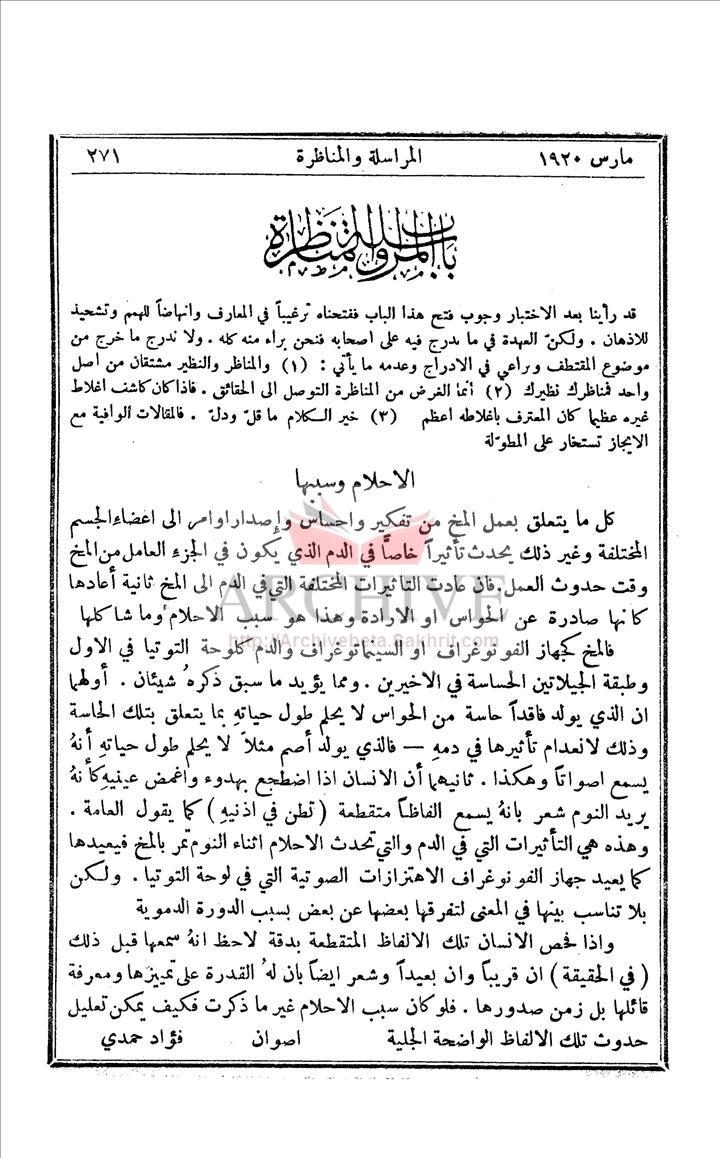 مارس ١٩٢٠ المراسلة والمناظرة ٢٧١
باب المراسلة والمناظرة
قد رأينا بعد الاختبار وجوب فتح هذا الباب ففتحناه ترغيباً في المعارف وانهاضاً للهمم وتشحيذ
للاذهان . ولكنّ العهدة في ما يدرج فيه على اصحابه فنحن براء منه كله . ولا ندرج ما خرج عن
موضوع المقتطف ونراعي في الادراج وعدمه ما يأتي : (١) والمناظر والنظير مشتقان من اصل
واحد فمناظرك نظيرك (٢) انما الغرض من المناظرة التوصل الى الحقائق . فاذا كان كاشف اغلاط
غيره عظيما كان المعترف باغلاطه اعظم (٣) خير الكلام ما قلّ ودلّ . فالمقالات الوافية مع
الايجاز تستخار على المطوّلة
الاحلام وسببها
كل ما يتعلق بعمل المخ من تفكير واحساس وإصدار اوامر الى اعضاء الجسم
المختلفة وغير ذلك يحدث تأثيراً خاصاً في الدم الذي يكون في الجزء العامل من المخ
وقت حدوث العمل . فان عادت التاثيرات المختلفة التي في الدم الى المخ ثانية أعادها
كانها صادرة عن الحواس او الارادة وهذا هو سبب الاحلام وما شاكلها
ARCHIVE
http://Archivebeta.Sakhrit.com
فالمخ كجهاز الفونوغراف او السينماتوغراف والدم كلوحة التوتيا في الاول
وطبقة الجيلاتين الحساسة في الاخيرين . ومما يؤيد ما سبق ذكرهُ شيئان . أولهما
ان الذي يولد فاقداً حاسة من الحواس لا يحلم طول حياتهِ بما يتعلق بتلك الحاسة
وذلك لانعدام تأثيرها في دمهِ — فالذي يولد أصم مثلاً لا يحلم طول حياتهِ أنهُ
يسمع اصواتاً وهكذا . ثانيهما أن الانسان اذا اضطجع بهدوء واغمض عينيهِ كأنهُ
يريد النوم شعر بانهُ يسمع الفاظاً متقطعة ( تطن في اذنيهِ ) كما يقول العامة .
وهذه هي التأثيرات التي في الدم والتي تحدث الاحلام اثناء النوم تمر بالمخ فيعيدها
كما يعيد جهاز الفونوغراف الاهتزازات الصوتية التي في لوحة التوتيا . ولكن
بلا تناسب بينها في المعنى لتفرقها بعضها عن بعض بسبب الدورة الدموية
واذا فحص الانسان تلك الالفاظ المتقطعة بدقة لاحظ انهُ سمعها قبل ذلك
( في الحقيقة ) ان قريباً وان بعيداً وشعر ايضاً بان لهُ القدرة على تمييزها ومعرفة
قائلها بل زمن صدورها . فلو كان سبب الاحلام غير ما ذكرت فكيف يمكن تعليل
حدوث تلك الالفاظ الواضحة الجلية اصوان فؤاد حمدي